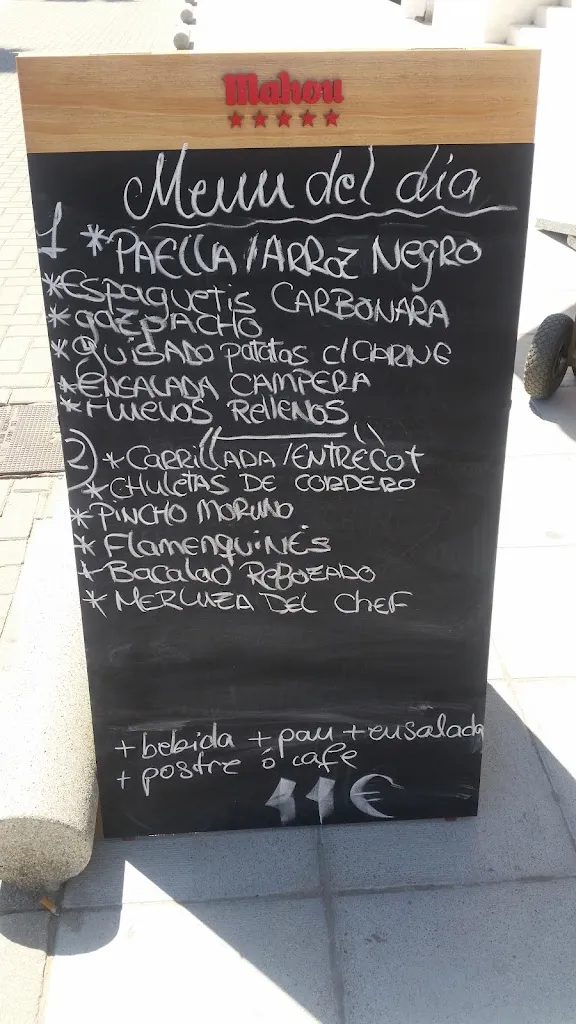 Mahou
Menu del dia
1 * PAELLA / ARROZ NEGRO
* ESPAGUETIS CARBONARA
* GAZPACHO
* GUISADO PATATAS C/CARNE
* ENSALADA CAMPERA
* HUEVOS RELLENOS
2) * CARRILLADA / ENTRECOT
* CHULETAS DE CORDERO
* PINCHO MORUNO
* FlamenquiNES
* BACALAO REBOZADO
* MERLUZA DEL CHEF
+ bebida + pan + ensalada
+ postre ó cafe
11€